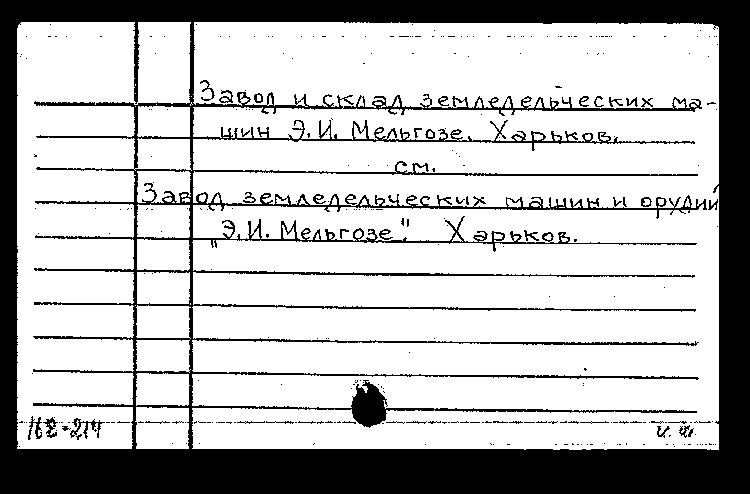 Завод и склад земледельческих ма-
шин Э.И. Мельгозе. Харьков.
см.
Завод земледельческих машин и орудий
„Э.И. Мельгозе". Харьков.
162-214
и. ф.